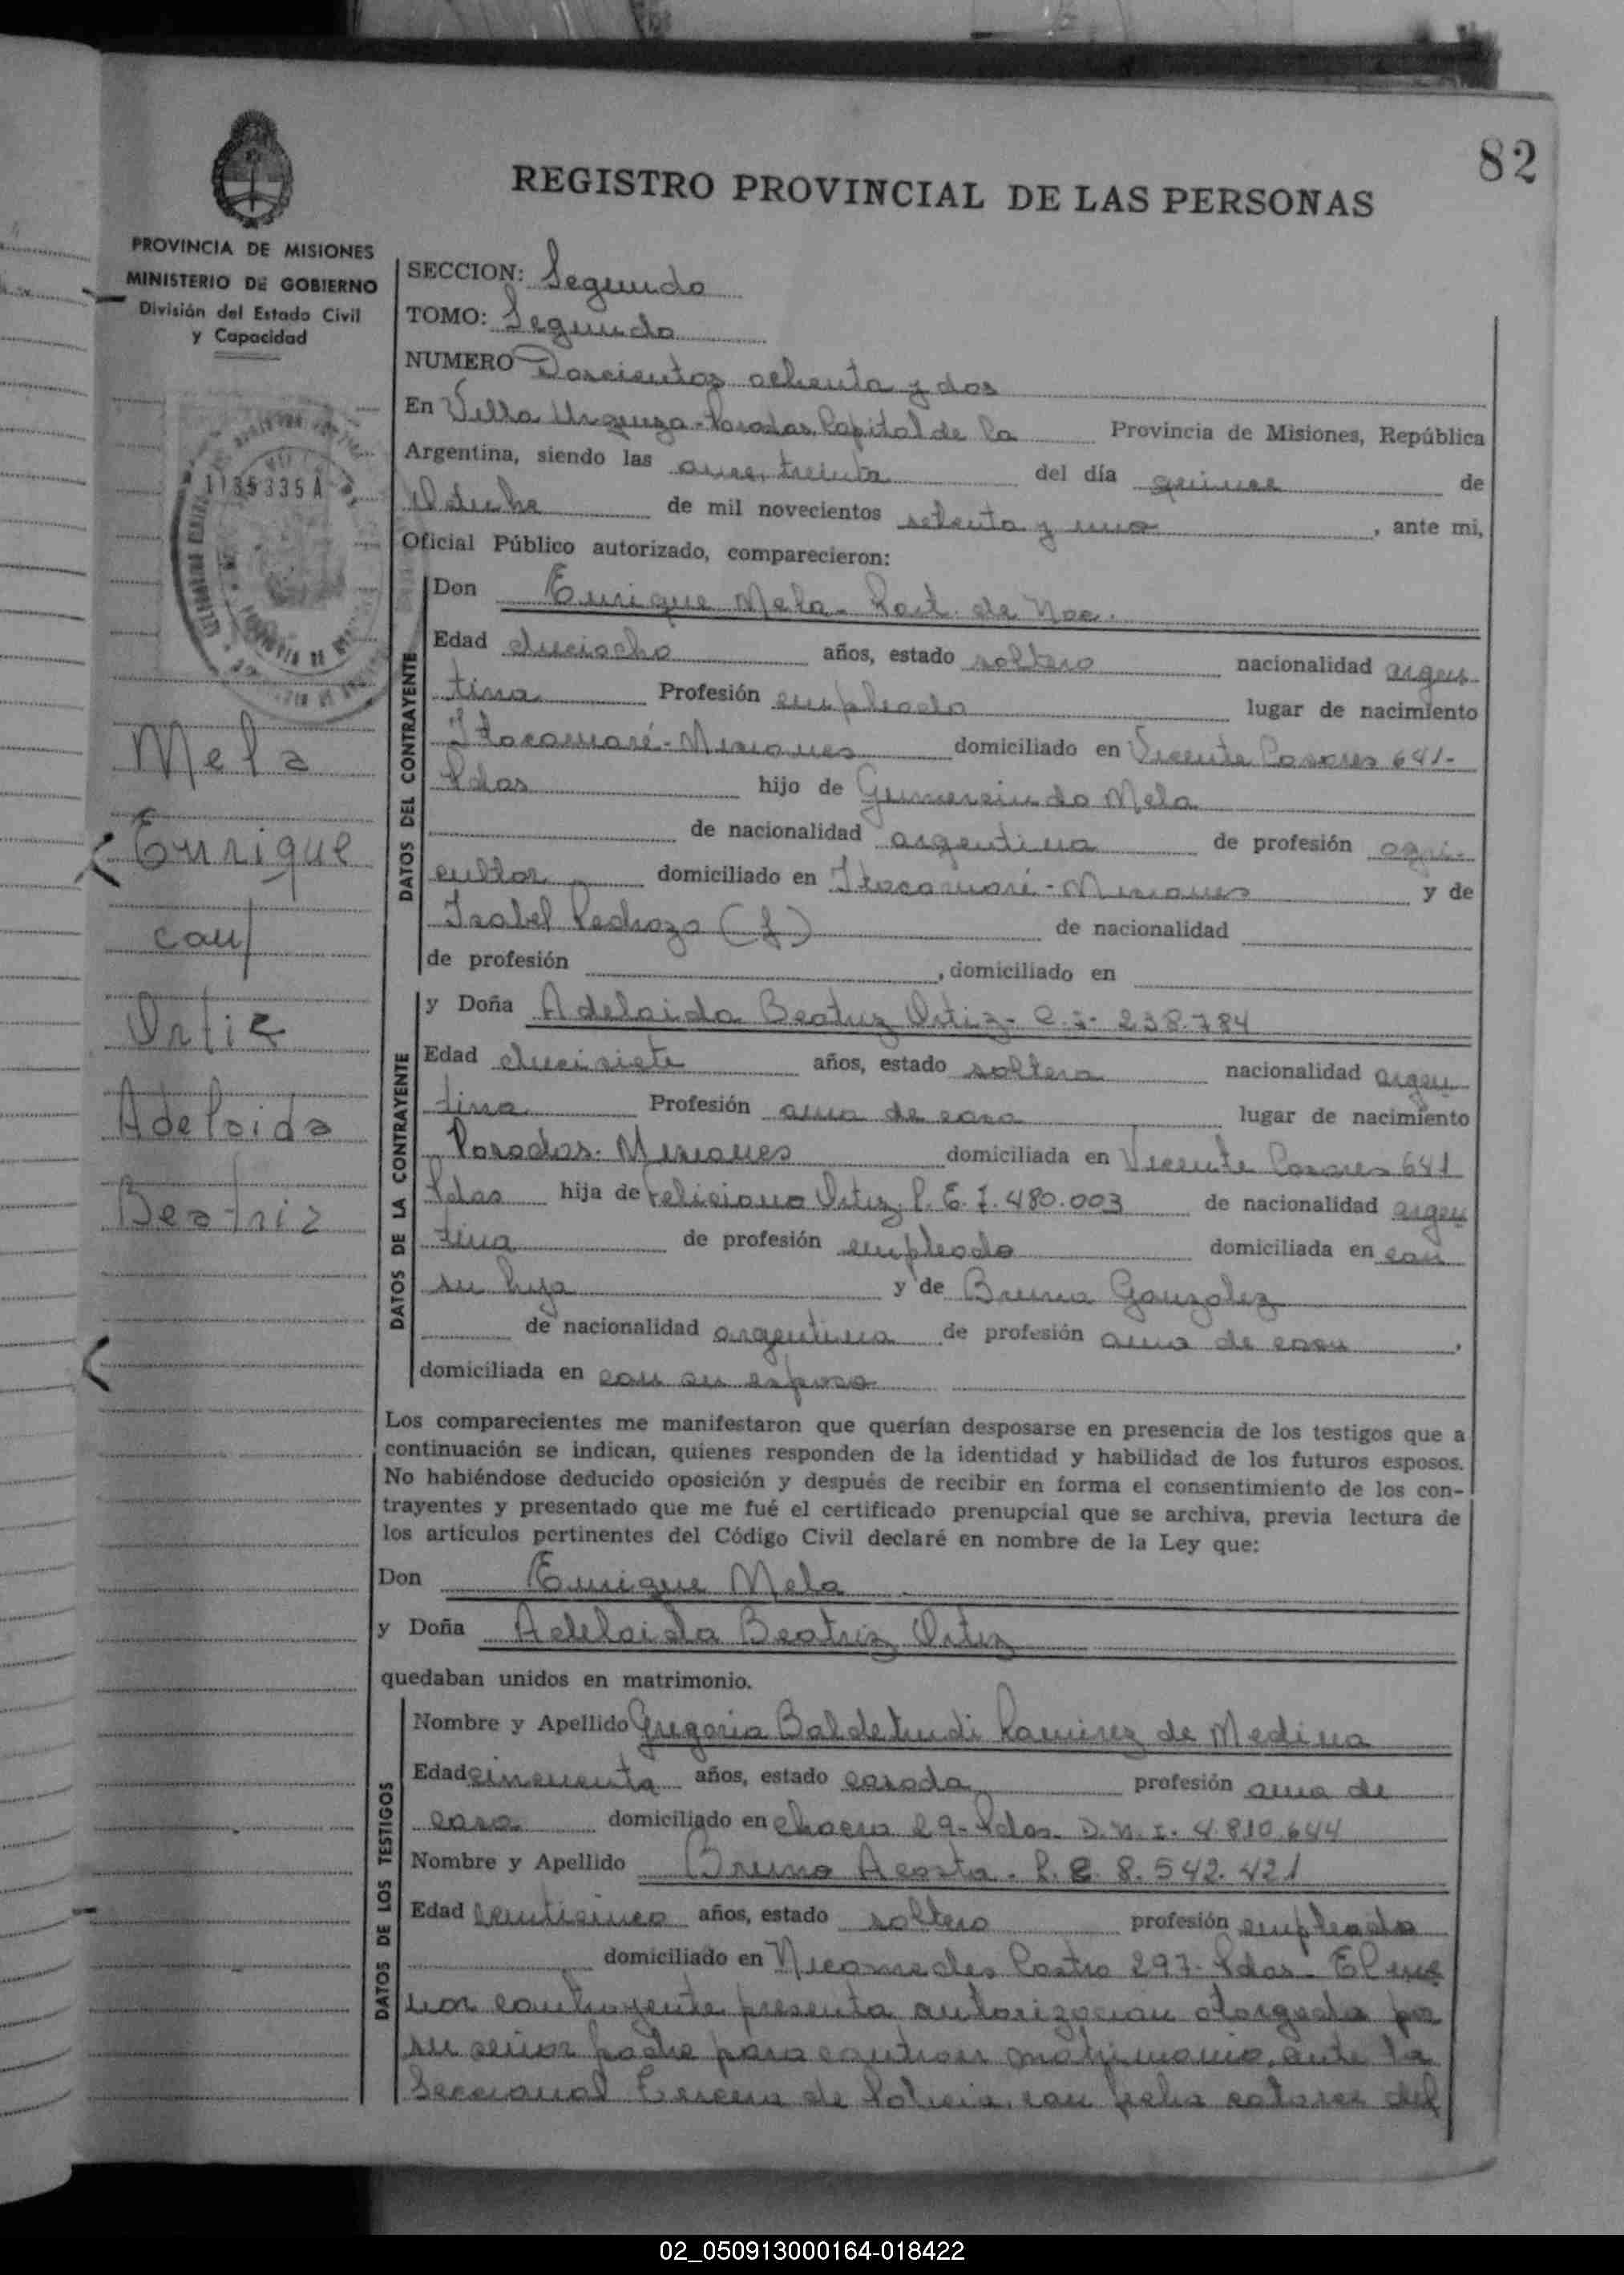 82
REGISTRO PROVINCIAL DE LAS PERSONAS
PROVINCIA DE MISIONES
MINISTERIO DE GOBIERNO
División del Estado Civil
y Capacidad
1135335A
Mela
Enrique
con/
Ortiz
Adelaida
Beatriz
SECCION: Segunda
TOMO: Segundo
NUMERO Doscientos ochenta y dos
En Villa Urquiza-Posadas, Capital de la Provincia de Misiones, República
Argentina, siendo las once, treinta del día quince de
Octubre de mil novecientos setenta y uno, ante mi,
Oficial Público autorizado, comparecieron:
DATOS DEL CONTRAYENTE
Don Enrique Mela- Part. de Nac.
Edad dieciocho años, estado soltero nacionalidad argen-
tina Profesión empleado lugar de nacimiento
Itacaruaré-Misiones domiciliado en Vicente Casares 641-
Pdas hijo de Gumersindo Mela
de nacionalidad argentina de profesión agri-
cultor domiciliado en Itacaruaré-Misiones y de
Isabel Pedrozo (f) de nacionalidad
de profesión , domiciliado en
DATOS DE LA CONTRAYENTE
y Doña Adelaida Beatriz Ortiz- C.I- 238.784
Edad diecisiete años, estado soltera nacionalidad argen
tina Profesión ama de casa lugar de nacimiento
Posadas-Misiones domiciliada en Vicente Casares 641
Pdas hija de Feliciano Ortiz, L.E.7.480.003 de nacionalidad argen
tina de profesión empleado domiciliada en con
su hija y de Bruna Gonzalez
de nacionalidad argentina de profesión ama de casa,
domiciliada en con su esposo
Los comparecientes me manifestaron que querían desposarse en presencia de los testigos que a
continuación se indican, quienes responden de la identidad y habilidad de los futuros esposos.
No habiéndose deducido oposición y después de recibir en forma el consentimiento de los con-
trayentes y presentado que me fué el certificado prenupcial que se archiva, previa lectura de
los artículos pertinentes del Código Civil declaré en nombre de la Ley que:
Don Enrique Mela
y Doña Adelaida Beatriz Ortiz
quedaban unidos en matrimonio.
DATOS DE LOS TESTIGOS
Nombre y Apellido Gregoria Baldetrudi Ramirez de Medina
Edad cincuenta años, estado casada profesión ama de
casa domiciliado en chacra 29-Pdas- D.N.I- 4.810.644
Nombre y Apellido Bruno Acosta- L.E 8.542.421
Edad veinticinco años, estado soltero profesión empleado
domiciliado en Nicomedes Castro 297-Pdas- El me
nor contrayente presenta autorización otorgada por
su señor padre para contraer matrimonio, ante la
Seccional Tercera de Policia, con fecha catorce del
02_050913000164-018422